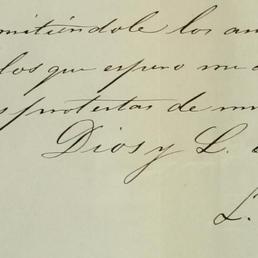 mitiéndole los an
los que espero me a
s protestas de mi
Dios y L.
L.